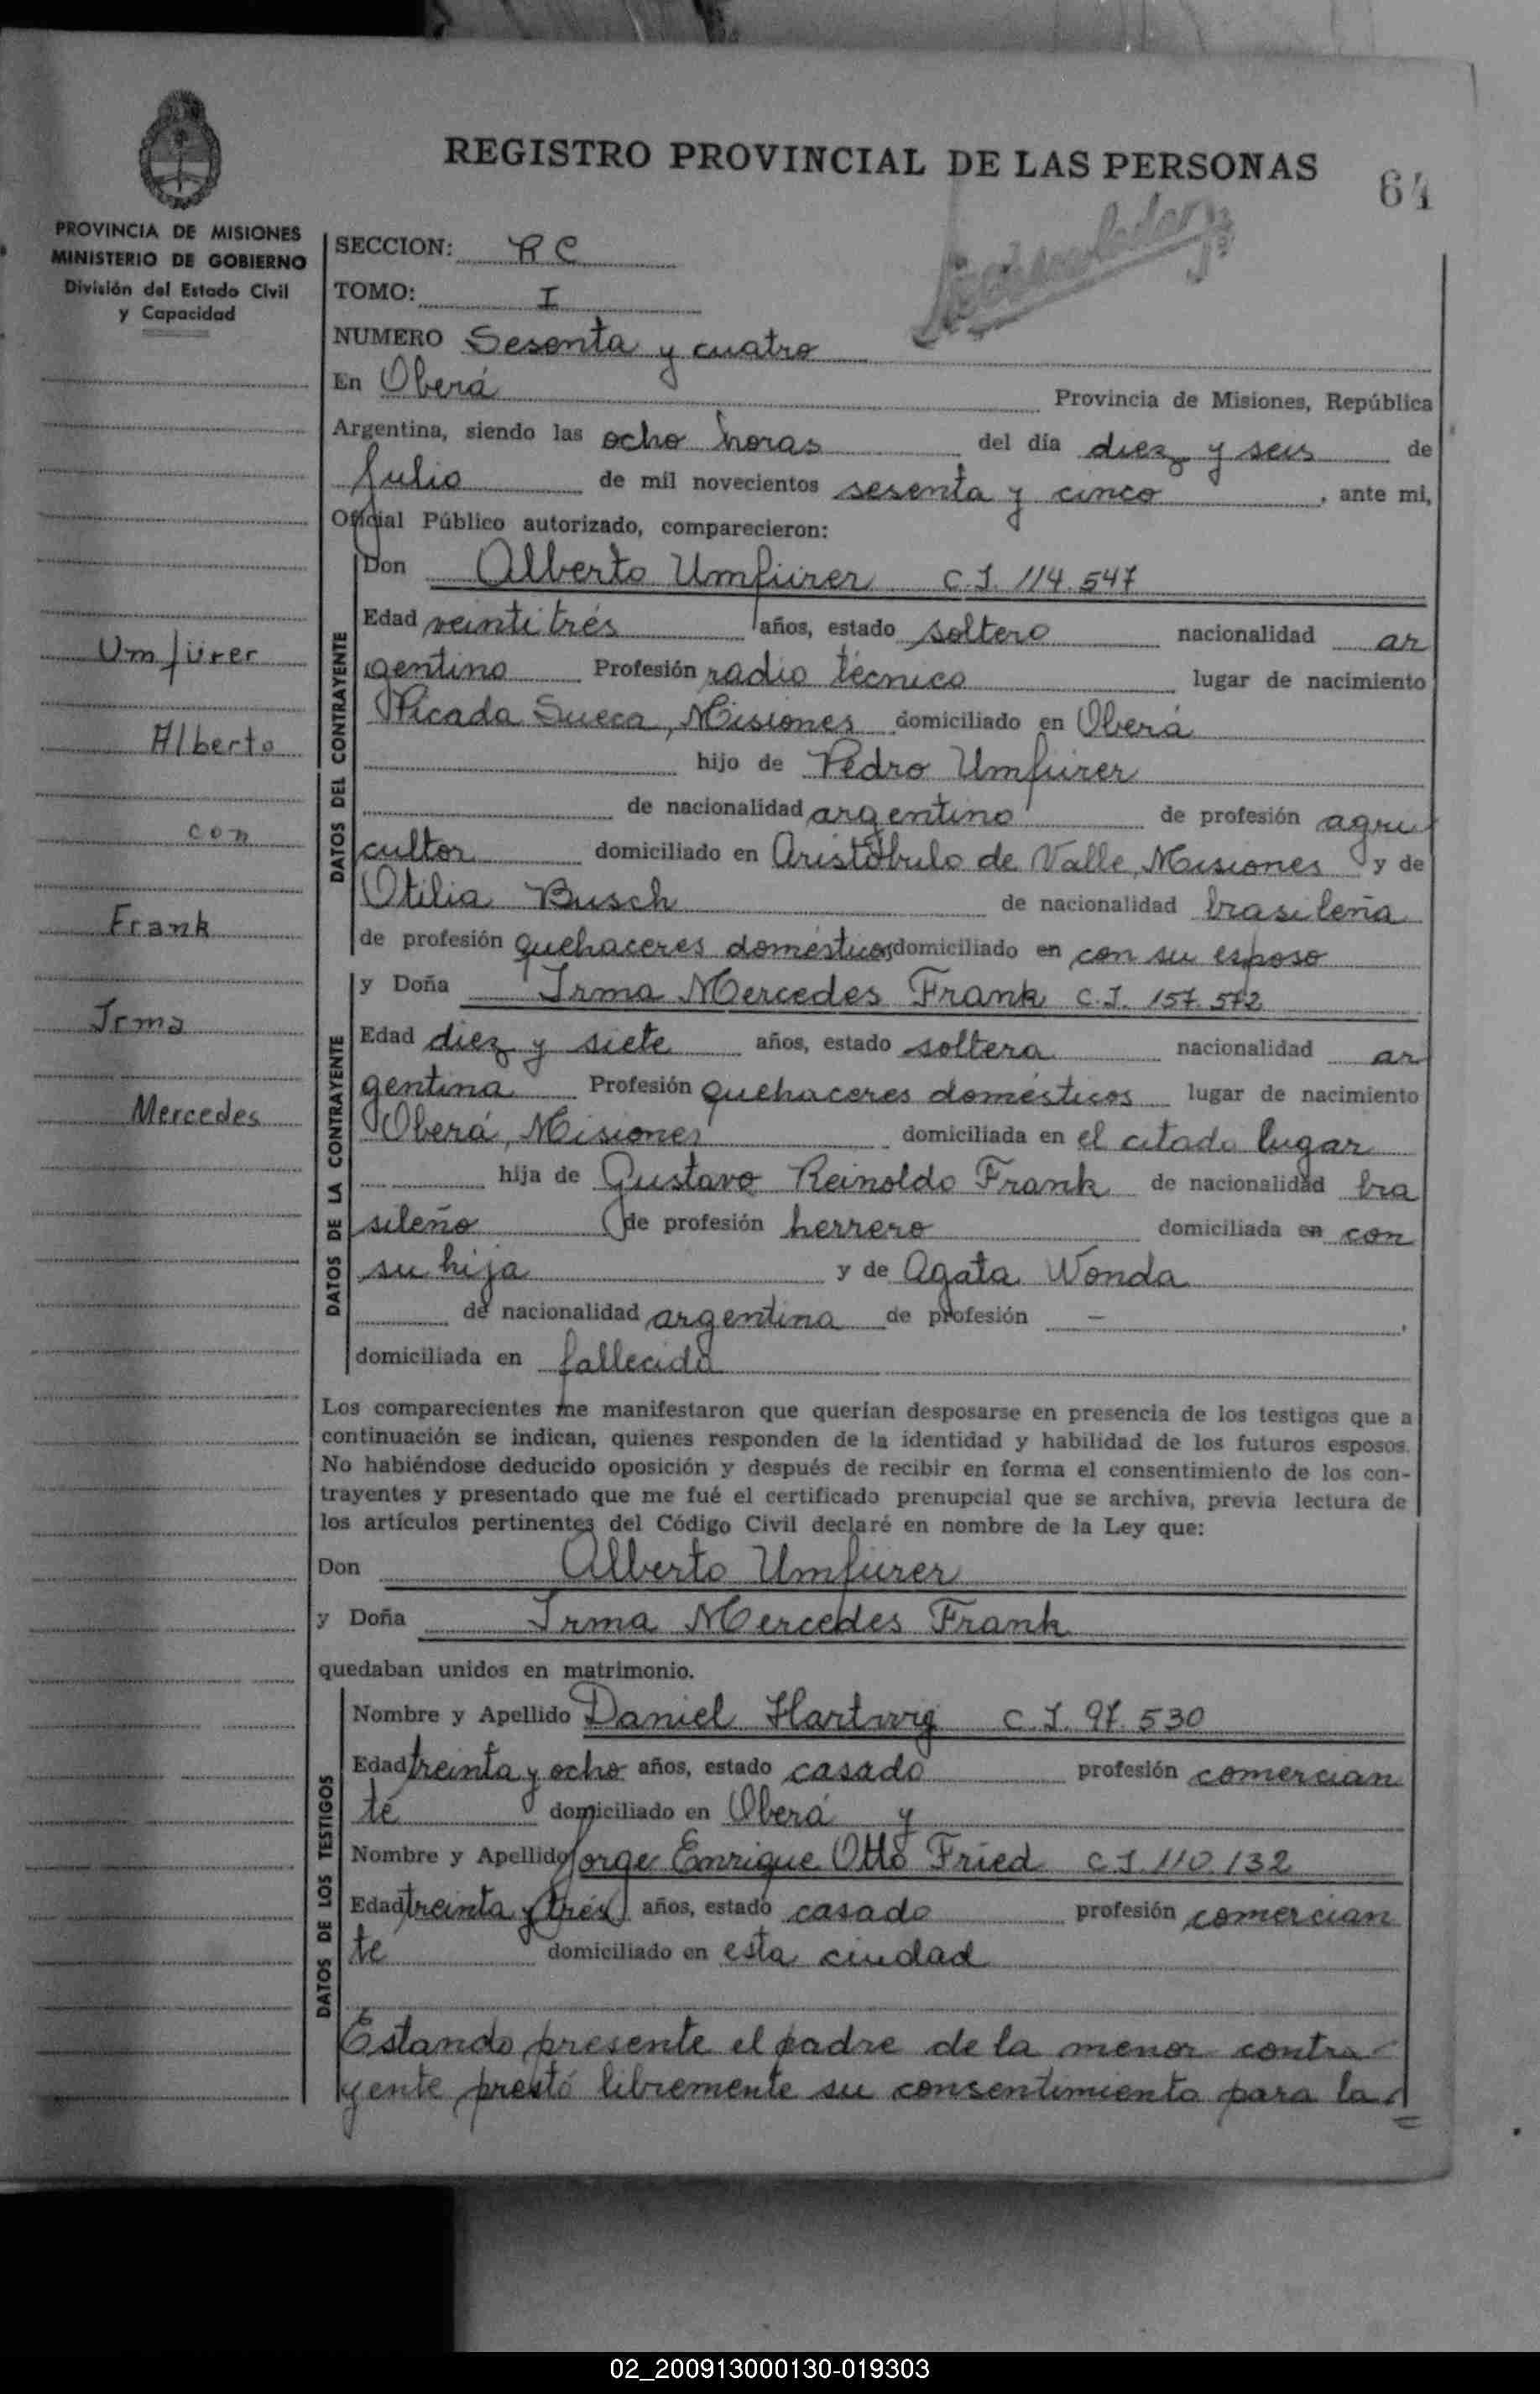 REGISTRO PROVINCIAL DE LAS PERSONAS
64
PROVINCIA DE MISIONES
MINISTERIO DE GOBIERNO
División del Estado Civil
y Capacidad
Umfürer
Alberto
con
Frank
Irma
Mercedes
SECCION: RC
TOMO: I
NUMERO Sesenta y cuatro
En Oberá Provincia de Misiones, República
Argentina, siendo las ocho horas del día diez y seis de
Julio de mil novecientos sesenta y cinco, ante mi,
Oficial Público autorizado, comparecieron:
DATOS DEL CONTRAYENTE
Don Alberto Umfürer C.I. 114.547
Edad veintitrés años, estado soltero nacionalidad ar
gentino Profesión radio técnico lugar de nacimiento
Picada Sueca, Misiones domiciliado en Oberá
hijo de Pedro Umfürer
de nacionalidad argentino de profesión agri
cultor domiciliado en Aristóbulo de Valle, Misiones y de
Otilia Busch de nacionalidad brasileña
de profesión quehaceres domésticos domiciliado en con su esposo
DATOS DE LA CONTRAYENTE
y Doña Irma Mercedes Frank C.I. 157.572
Edad diez y siete años, estado soltera nacionalidad ar
gentina Profesión quehaceres domésticos lugar de nacimiento
Oberá, Misiones domiciliada en el citado lugar
hija de Gustavo Reinoldo Frank de nacionalidad bra
sileño de profesión herrero domiciliada en con
su hija y de Agata Wonda
de nacionalidad argentina de profesión —,
domiciliada en fallecida
Los comparecientes me manifestaron que querían desposarse en presencia de los testigos que a
continuación se indican, quienes responden de la identidad y habilidad de los futuros esposos.
No habiéndose deducido oposición y después de recibir en forma el consentimiento de los con-
trayentes y presentado que me fué el certificado prenupcial que se archiva, previa lectura de
los artículos pertinentes del Código Civil declaré en nombre de la Ley que:
Don Alberto Umfürer
y Doña Irma Mercedes Frank
quedaban unidos en matrimonio.
DATOS DE LOS TESTIGOS
Nombre y Apellido Daniel Hartwig C.I. 97.530
Edad treinta y ocho años, estado casado profesión comercian
te domiciliado en Oberá y
Nombre y Apellido Jorge Enrique Otto Fried C.I. 110.132
Edad treinta y trés años, estado casado profesión comercian
te domiciliado en esta ciudad
Estando presente el padre de la menor contra-
yente prestó libremente su consentimiento para la
02_200913000130-019303